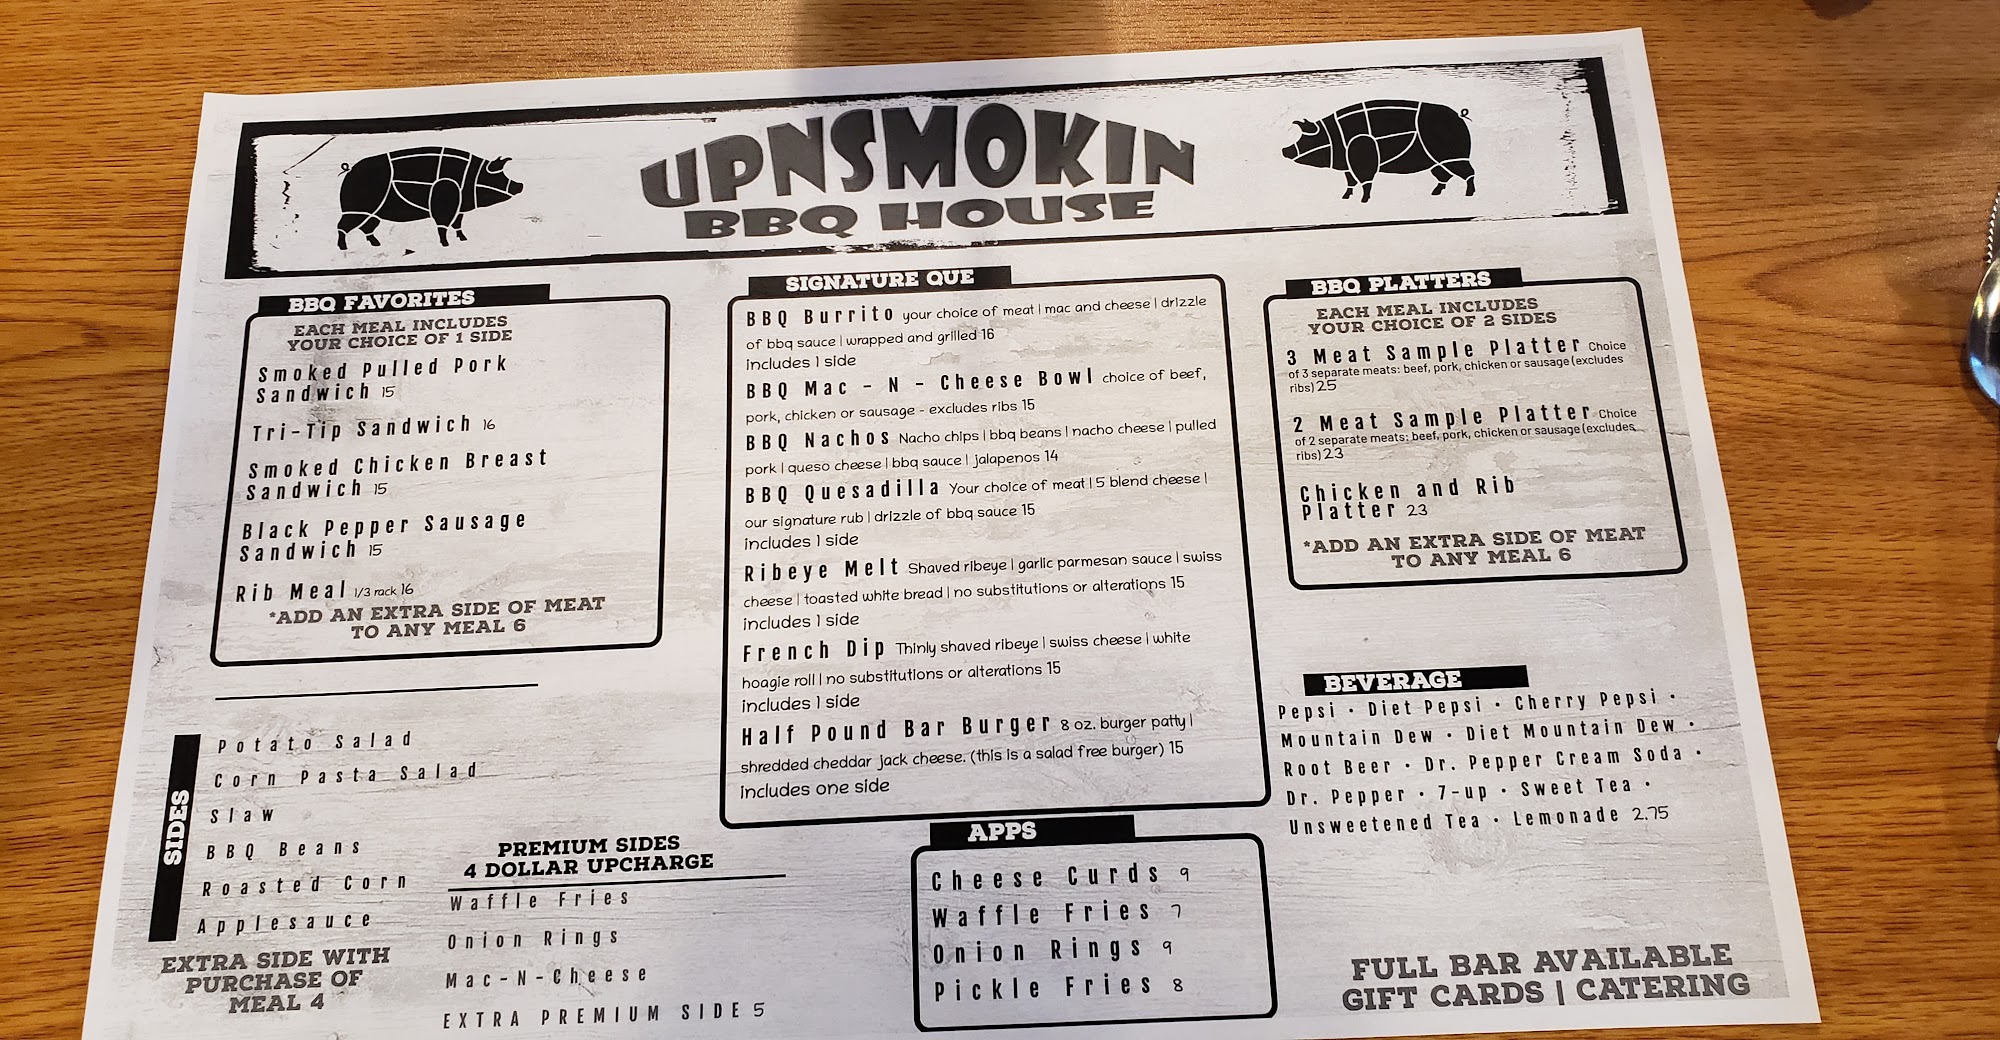 UPNSMOKIN
BBQ HOUSE
BBQ FAVORITES
EACH MEAL INCLUDES
YOUR CHOICE OF 1 SIDE
Smoked Pulled Pork
Sandwich 15
Tri-Tip Sandwich 16
Smoked Chicken Breast
Sandwich 15
Black Pepper Sausage
Sandwich 15
Rib Meal 1/3 rack 16
*ADD AN EXTRA SIDE OF MEAT
TO ANY MEAL 6
SIDES
Potato Salad
Corn Pasta Salad
Slaw
BBQ Beans
Roasted Corn
Applesauce
EXTRA SIDE WITH
PURCHASE OF
MEAL 4
PREMIUM SIDES
4 DOLLAR UPCHARGE
Waffle Fries
Onion Rings
Mac-N-Cheese
EXTRA PREMIUM SIDE 5
SIGNATURE QUE
BBQ Burrito your choice of meat | mac and cheese | drizzle
of bbq sauce | wrapped and grilled 16
includes 1 side
BBQ Mac - N - Cheese Bowl choice of beef,
pork, chicken or sausage - excludes ribs 15
BBQ Nachos Nacho chips | bbq beans | nacho cheese | pulled
pork | queso cheese | bbq sauce | jalapenos 14
BBQ Quesadilla Your choice of meat | 5 blend cheese |
our signature rub | drizzle of bbq sauce 15
includes 1 side
Ribeye Melt Shaved ribeye | garlic parmesan sauce | swiss
cheese | toasted white bread | no substitutions or alterations 15
includes 1 side
French Dip Thinly shaved ribeye | swiss cheese | white
hoagie roll | no substitutions or alterations 15
includes 1 side
Half Pound Bar Burger 8 oz. burger patty |
shredded cheddar jack cheese. (this is a salad free burger) 15
includes one side
APPS
Cheese Curds 9
Waffle Fries 7
Onion Rings 9
Pickle Fries 8
BBQ PLATTERS
EACH MEAL INCLUDES
YOUR CHOICE OF 2 SIDES
3 Meat Sample Platter Choice
of 3 separate meats: beef, pork, chicken or sausage (excludes
ribs) 25
2 Meat Sample Platter Choice
of 2 separate meats: beef, pork, chicken or sausage (excludes
ribs) 23
Chicken and Rib
Platter 23
*ADD AN EXTRA SIDE OF MEAT
TO ANY MEAL 6
BEVERAGE
Pepsi • Diet Pepsi • Cherry Pepsi •
Mountain Dew • Diet Mountain Dew •
Root Beer • Dr. Pepper Cream Soda •
Dr. Pepper • 7-up • Sweet Tea •
Unsweetened Tea • Lemonade 2.75
FULL BAR AVAILABLE
GIFT CARDS | CATERING